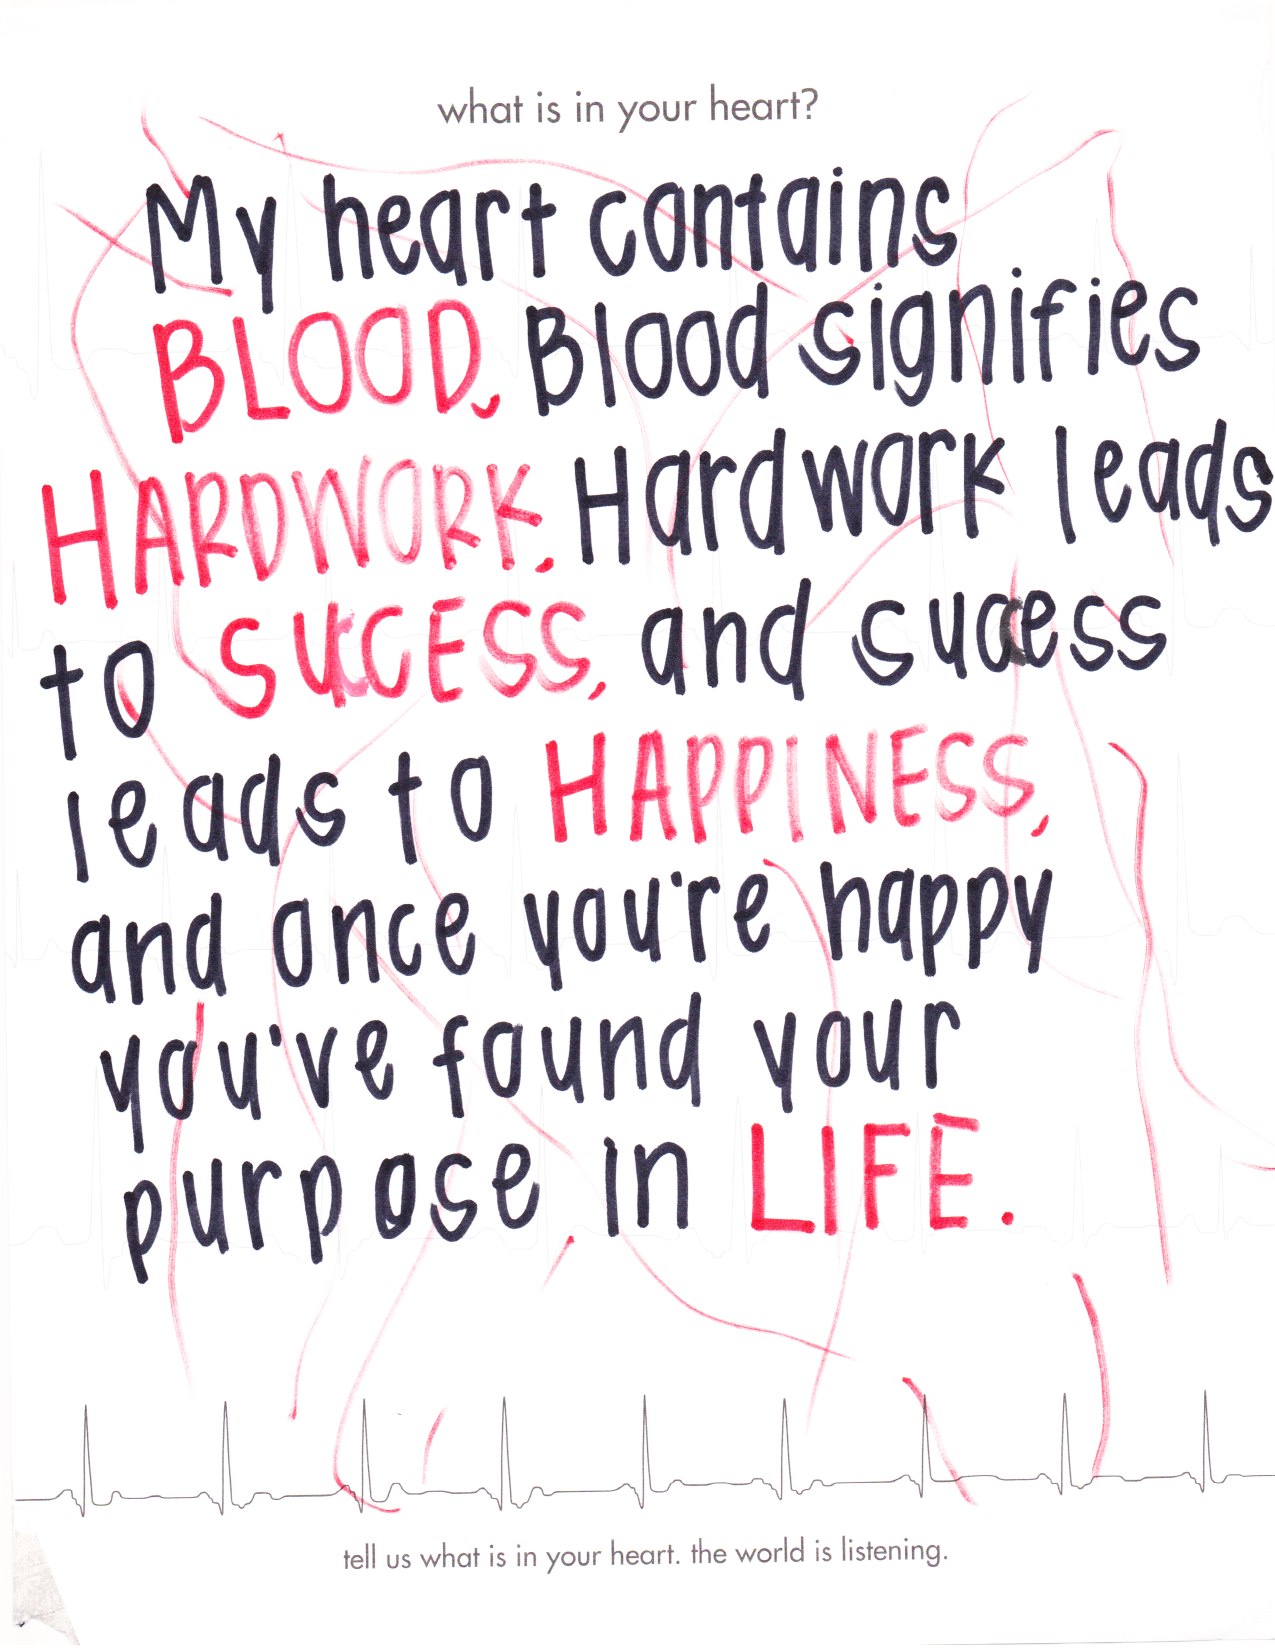 what is in your heart?
My heart contains
BLOOD, Blood signifies
HARDWORK, Hardwork leads
to SUCCESS, and success
leads to HAPPINESS,
and once you're happy
you've found your
purpose in LIFE.
tell us what is in your heart. the world is listening.